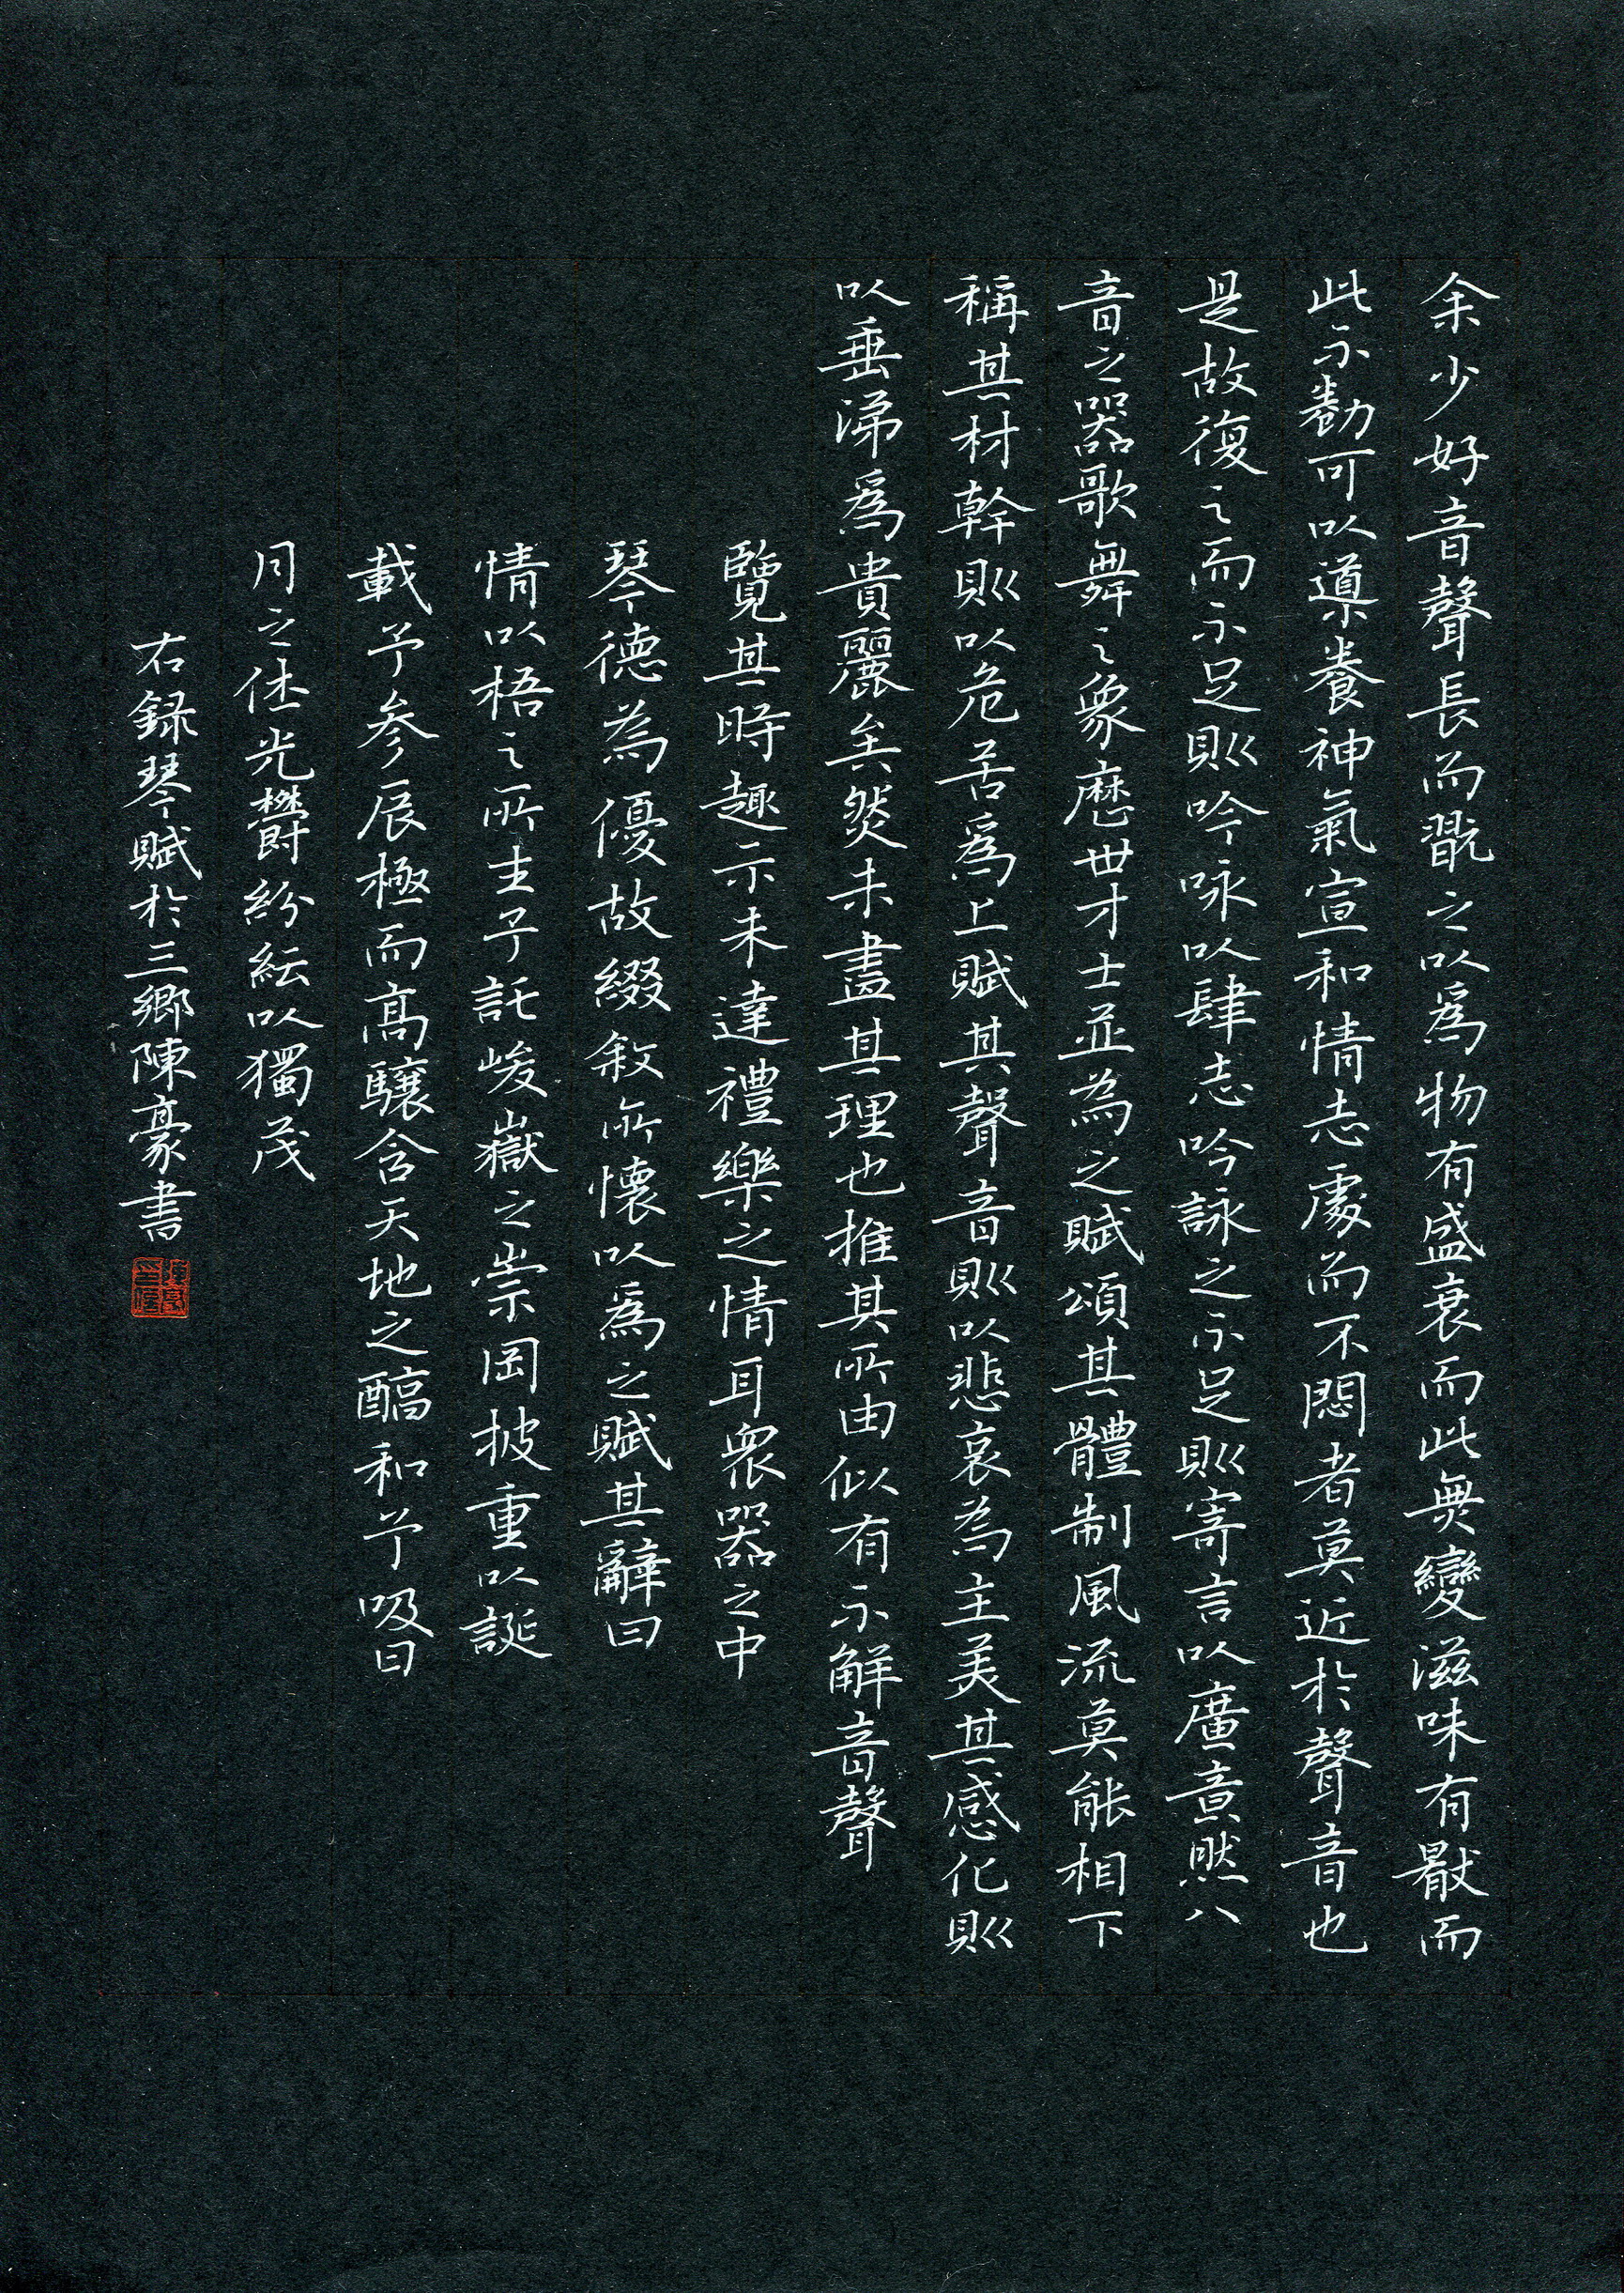 余少好音聲長而翫之以爲物有盛衰而此無變滋味有猒而
此不勌可以導養神氣宣和情志處而不悶者莫近於聲音也
是故復之而不足則吟咏以肆志吟詠之不足則寄言以廣意然八
音之器歌舞之象歷世才士並為之賦頌其體制風流莫能相下
稱其材幹則以危苦爲上賦其聲音則以悲哀為主美其感化則
以垂涕爲貴麗矣然未盡其理也推其所由似有不解音聲
覽其時趣示未達禮樂之情耳衆器之中
琴德為優故綴敘所懷以爲之賦其辭曰
情以梧之所生子託峻嶽之崇岡披重以誕
載兮参辰極而高驤含天地之醕和兮吸日
月之休光欝紛紜以獨茂
右録琴賦於三鄉陳豪書